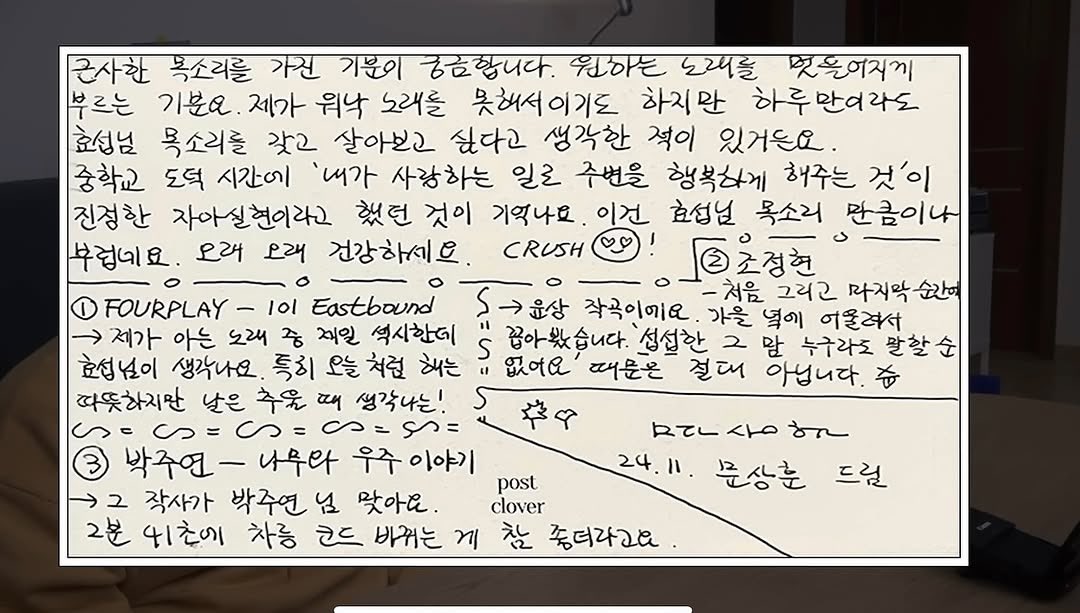 근사한 목소리를 가진 기분이 궁금합니다. 원하는 노래를 멋들어지게
부르는 기분요. 제가 워낙 노래를 못해서이기도 하지만 하루만이라도
효섭님 목소리를 갖고 살아보고 싶다고 생각한 적이 있거든요.
중학교 도덕 시간에 '내가 사랑하는 일로 주변을 행복하게 해주는 것'이
진정한 자아실현이라고 했던 것이 기억나요. 이건 효섭님 목소리 만큼이나
부럽네요. 오래 오래 건강하세요. CRUSH !
① FOURPLAY – 101 Eastbound
→ 제가 아는 노래 중 제일 섹시한데
효섭님이 생각나요. 특히 오늘처럼 해는
따뜻하지만 날은 추울 때 생각나는!
② 조정현
- 처음 그리고 마지막 순간에
→ 윤상 작곡이에요. 가을 녘에 어울려서
꼽아봤습니다. '섭섭한 그 맘 누구라도 말할 순
없어요' 때문은 절대 아닙니다. 쥼
③ 박주연 – 나무와 우주 이야기
→ 그 작사가 박주연 님 맞아요.
2분 41초에 차릉 코드 바뀌는 게 참 좋더라고요.
24.11. 문상훈 드림
post
clover